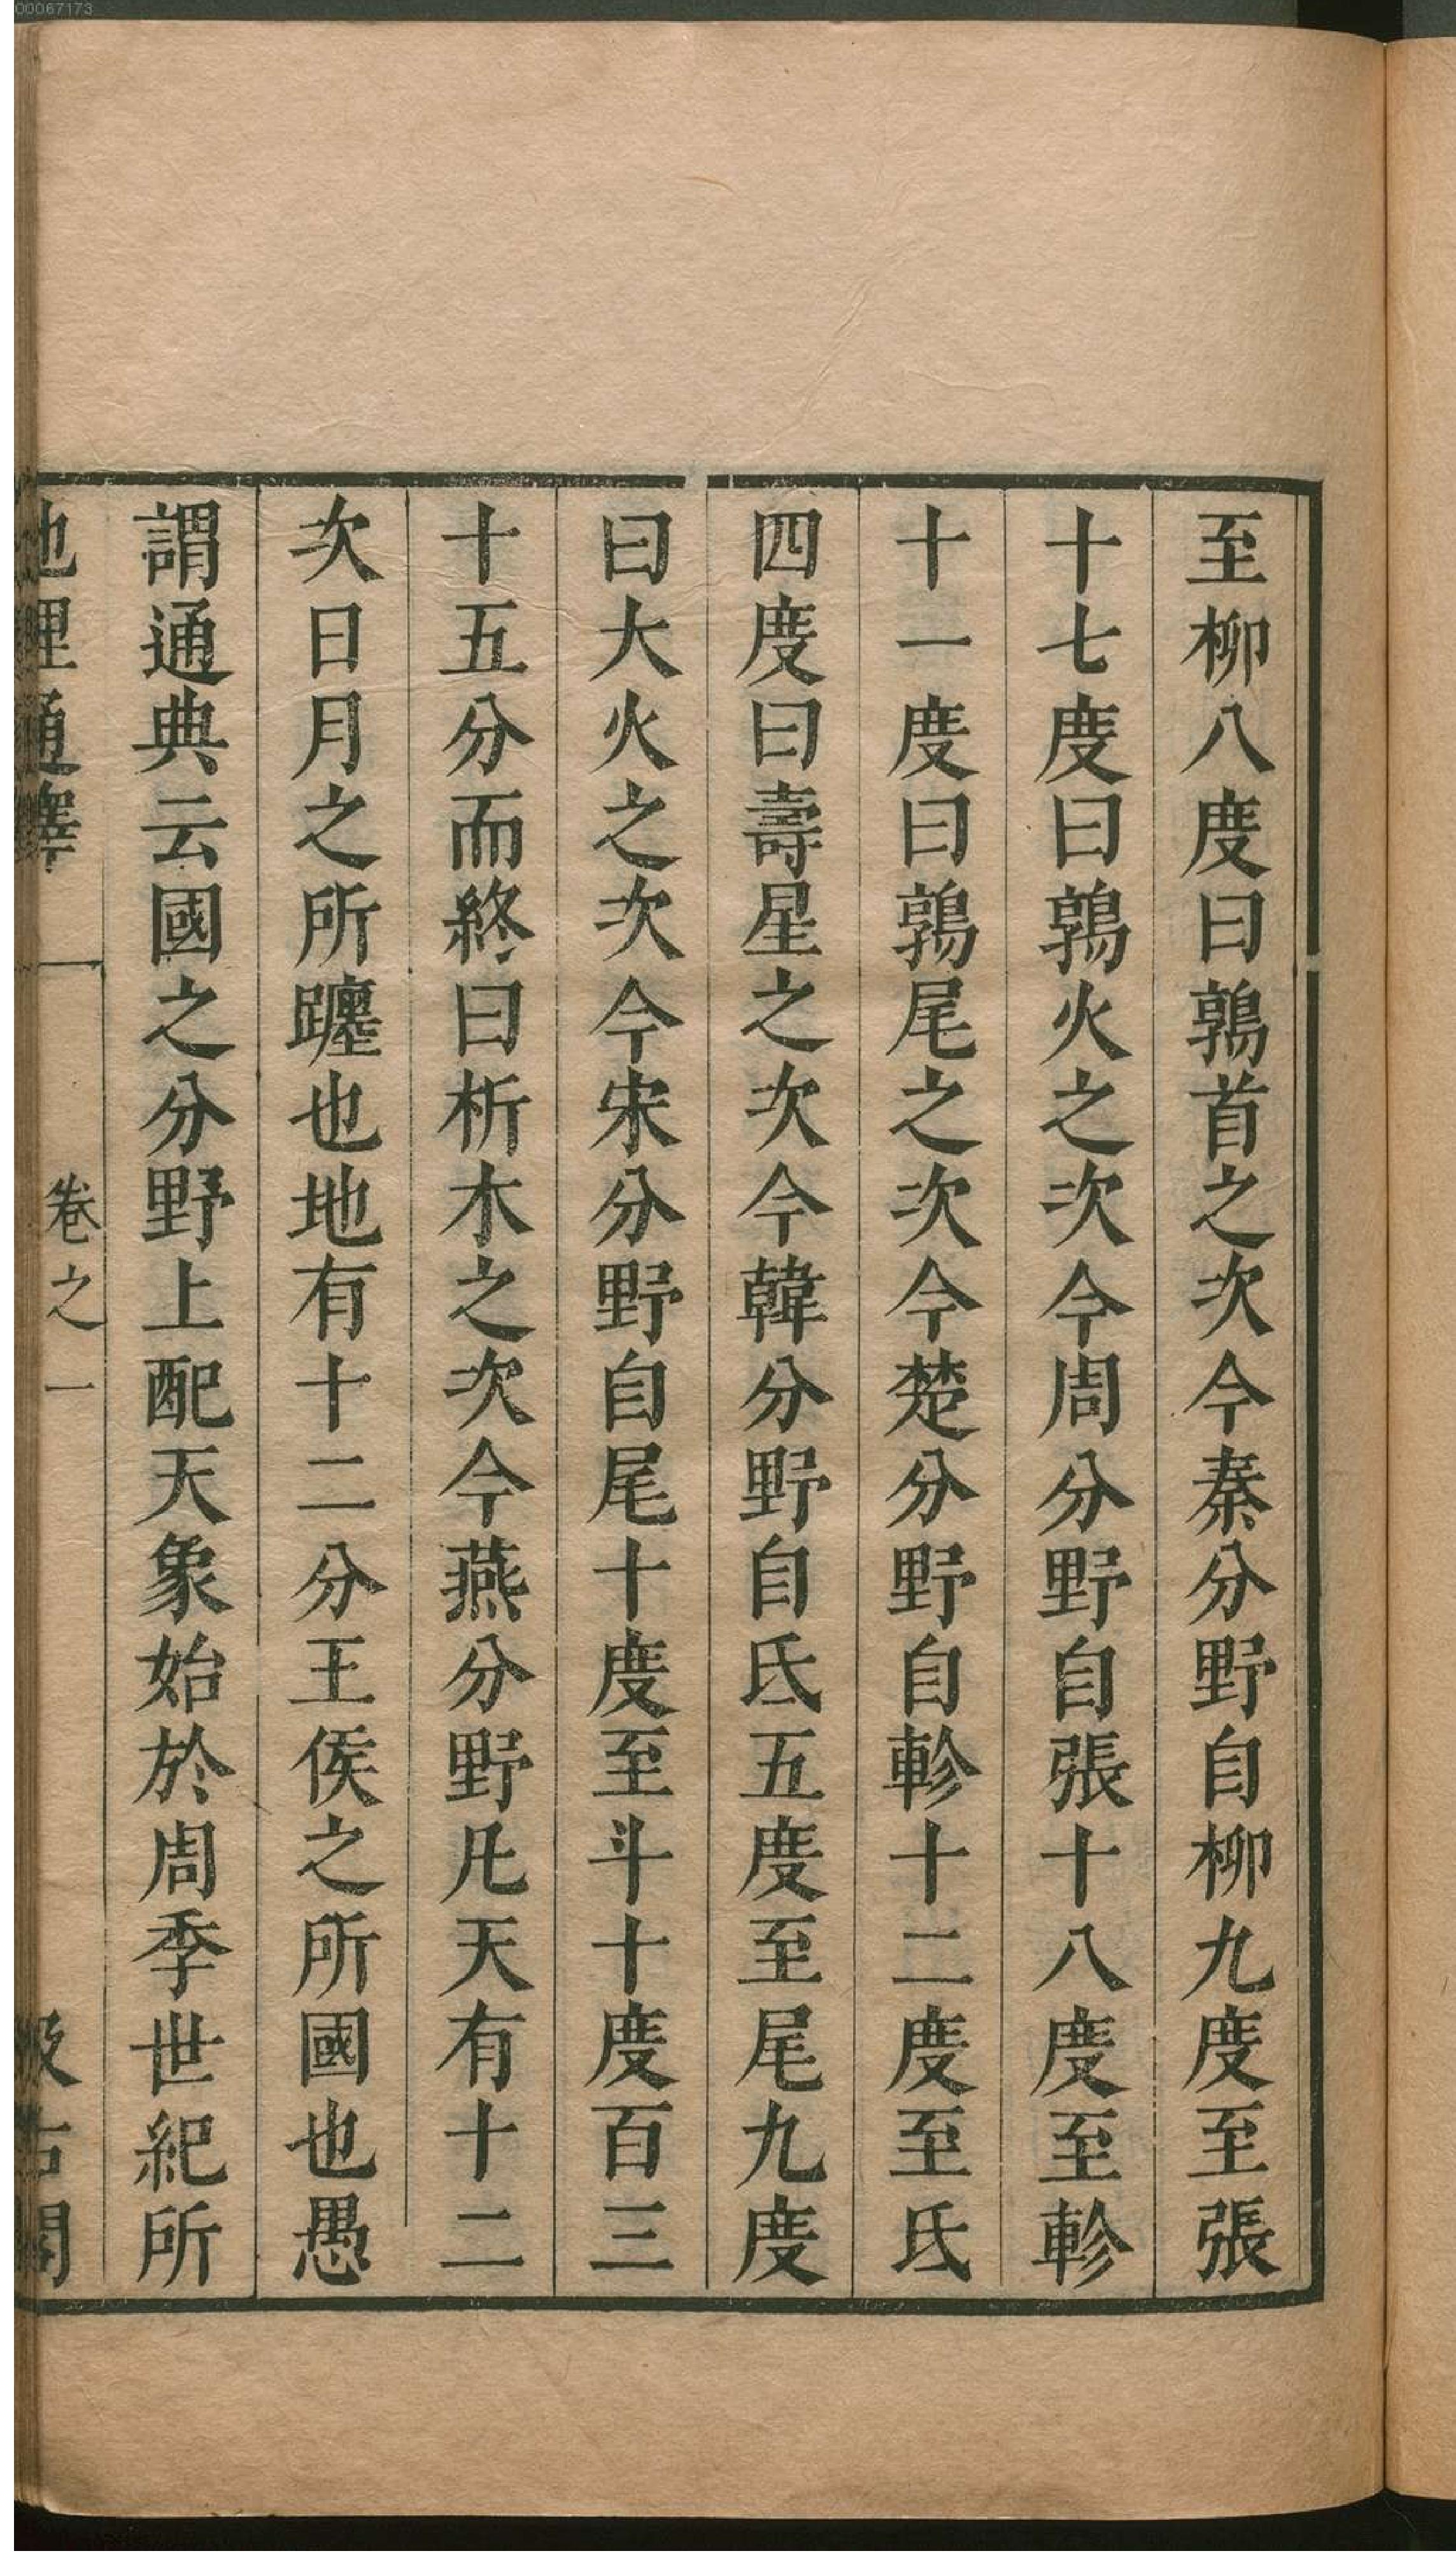 00067173
至柳八度曰鶉首之次今秦分野自柳九度至張
十七度曰鶉火之次今周分野自張十八度至軫
十一度曰鶉尾之次今楚分野自軫十二度至氐
四度曰壽星之次今韓分野自氐五度至尾九度
曰大火之次今宋分野自尾十度至斗十度百三
十五分而終曰析木之次今燕分野凡天有十二
次日月之所躔也地有十二分王侯之所國也愚
謂通典云國之分野上配天象始於周季世紀所
地理通釋 卷之一 汲古閣